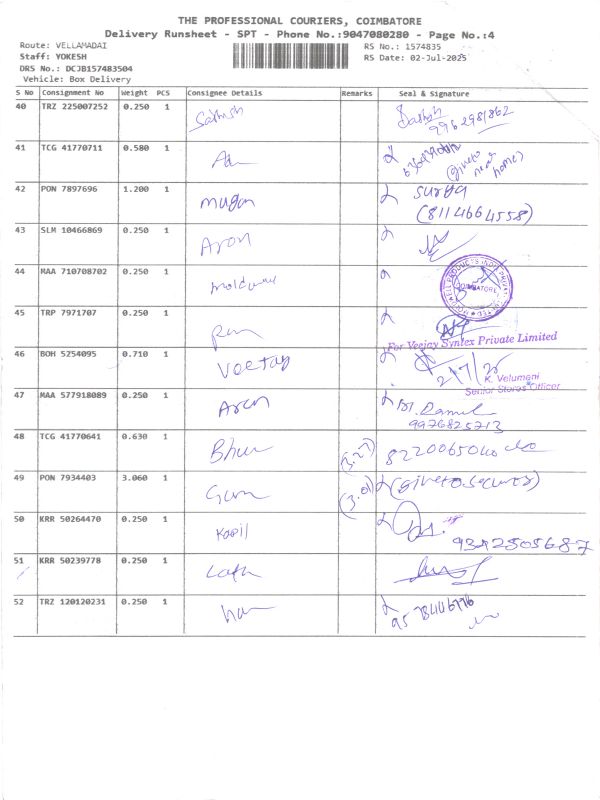 THE PROFESSIONAL COURIERS, COIMBATORE
Delivery Runsheet - SPT - Phone No.:9047080280 - Page No.:4
Route: VELLAMADAI
RS No.: 1574835
Staff: YOKESH
RS Date: 02-Jul-2025
DRS No.: DCJB157483504
Vehicle: Box Delivery
S No Consignment No Weight PCS Consignee Details Remarks Seal & Signature
40 TRZ 225007252 0.250 1 Sathish
41 TCG 41770711 0.580 1
(giveto
near
home)
42 PON 7897696 1.200 1 mugan surya
(8114664558)
43 SLM 10466869 0.250 1 Aron
44 MAA 710708702 0.250 1
COIMBATORE
45 TRP 7971707 0.250 1
For Veejay Syntex Private Limited
46 BOH 5254095 0.710 1 Veetay 2/7/25
K. Velumani
Senior Stores Officer
47 MAA 577918089 0.250 1 Aron
9976825713
48 TCG 41770641 0.630 1 (3.27)
49 PON 7934403 3.060 1
50 KRR 50264470 0.250 1 Kapil
9342505687
51 KRR 50239778 0.250 1
52 TRZ 120120231 0.250 1